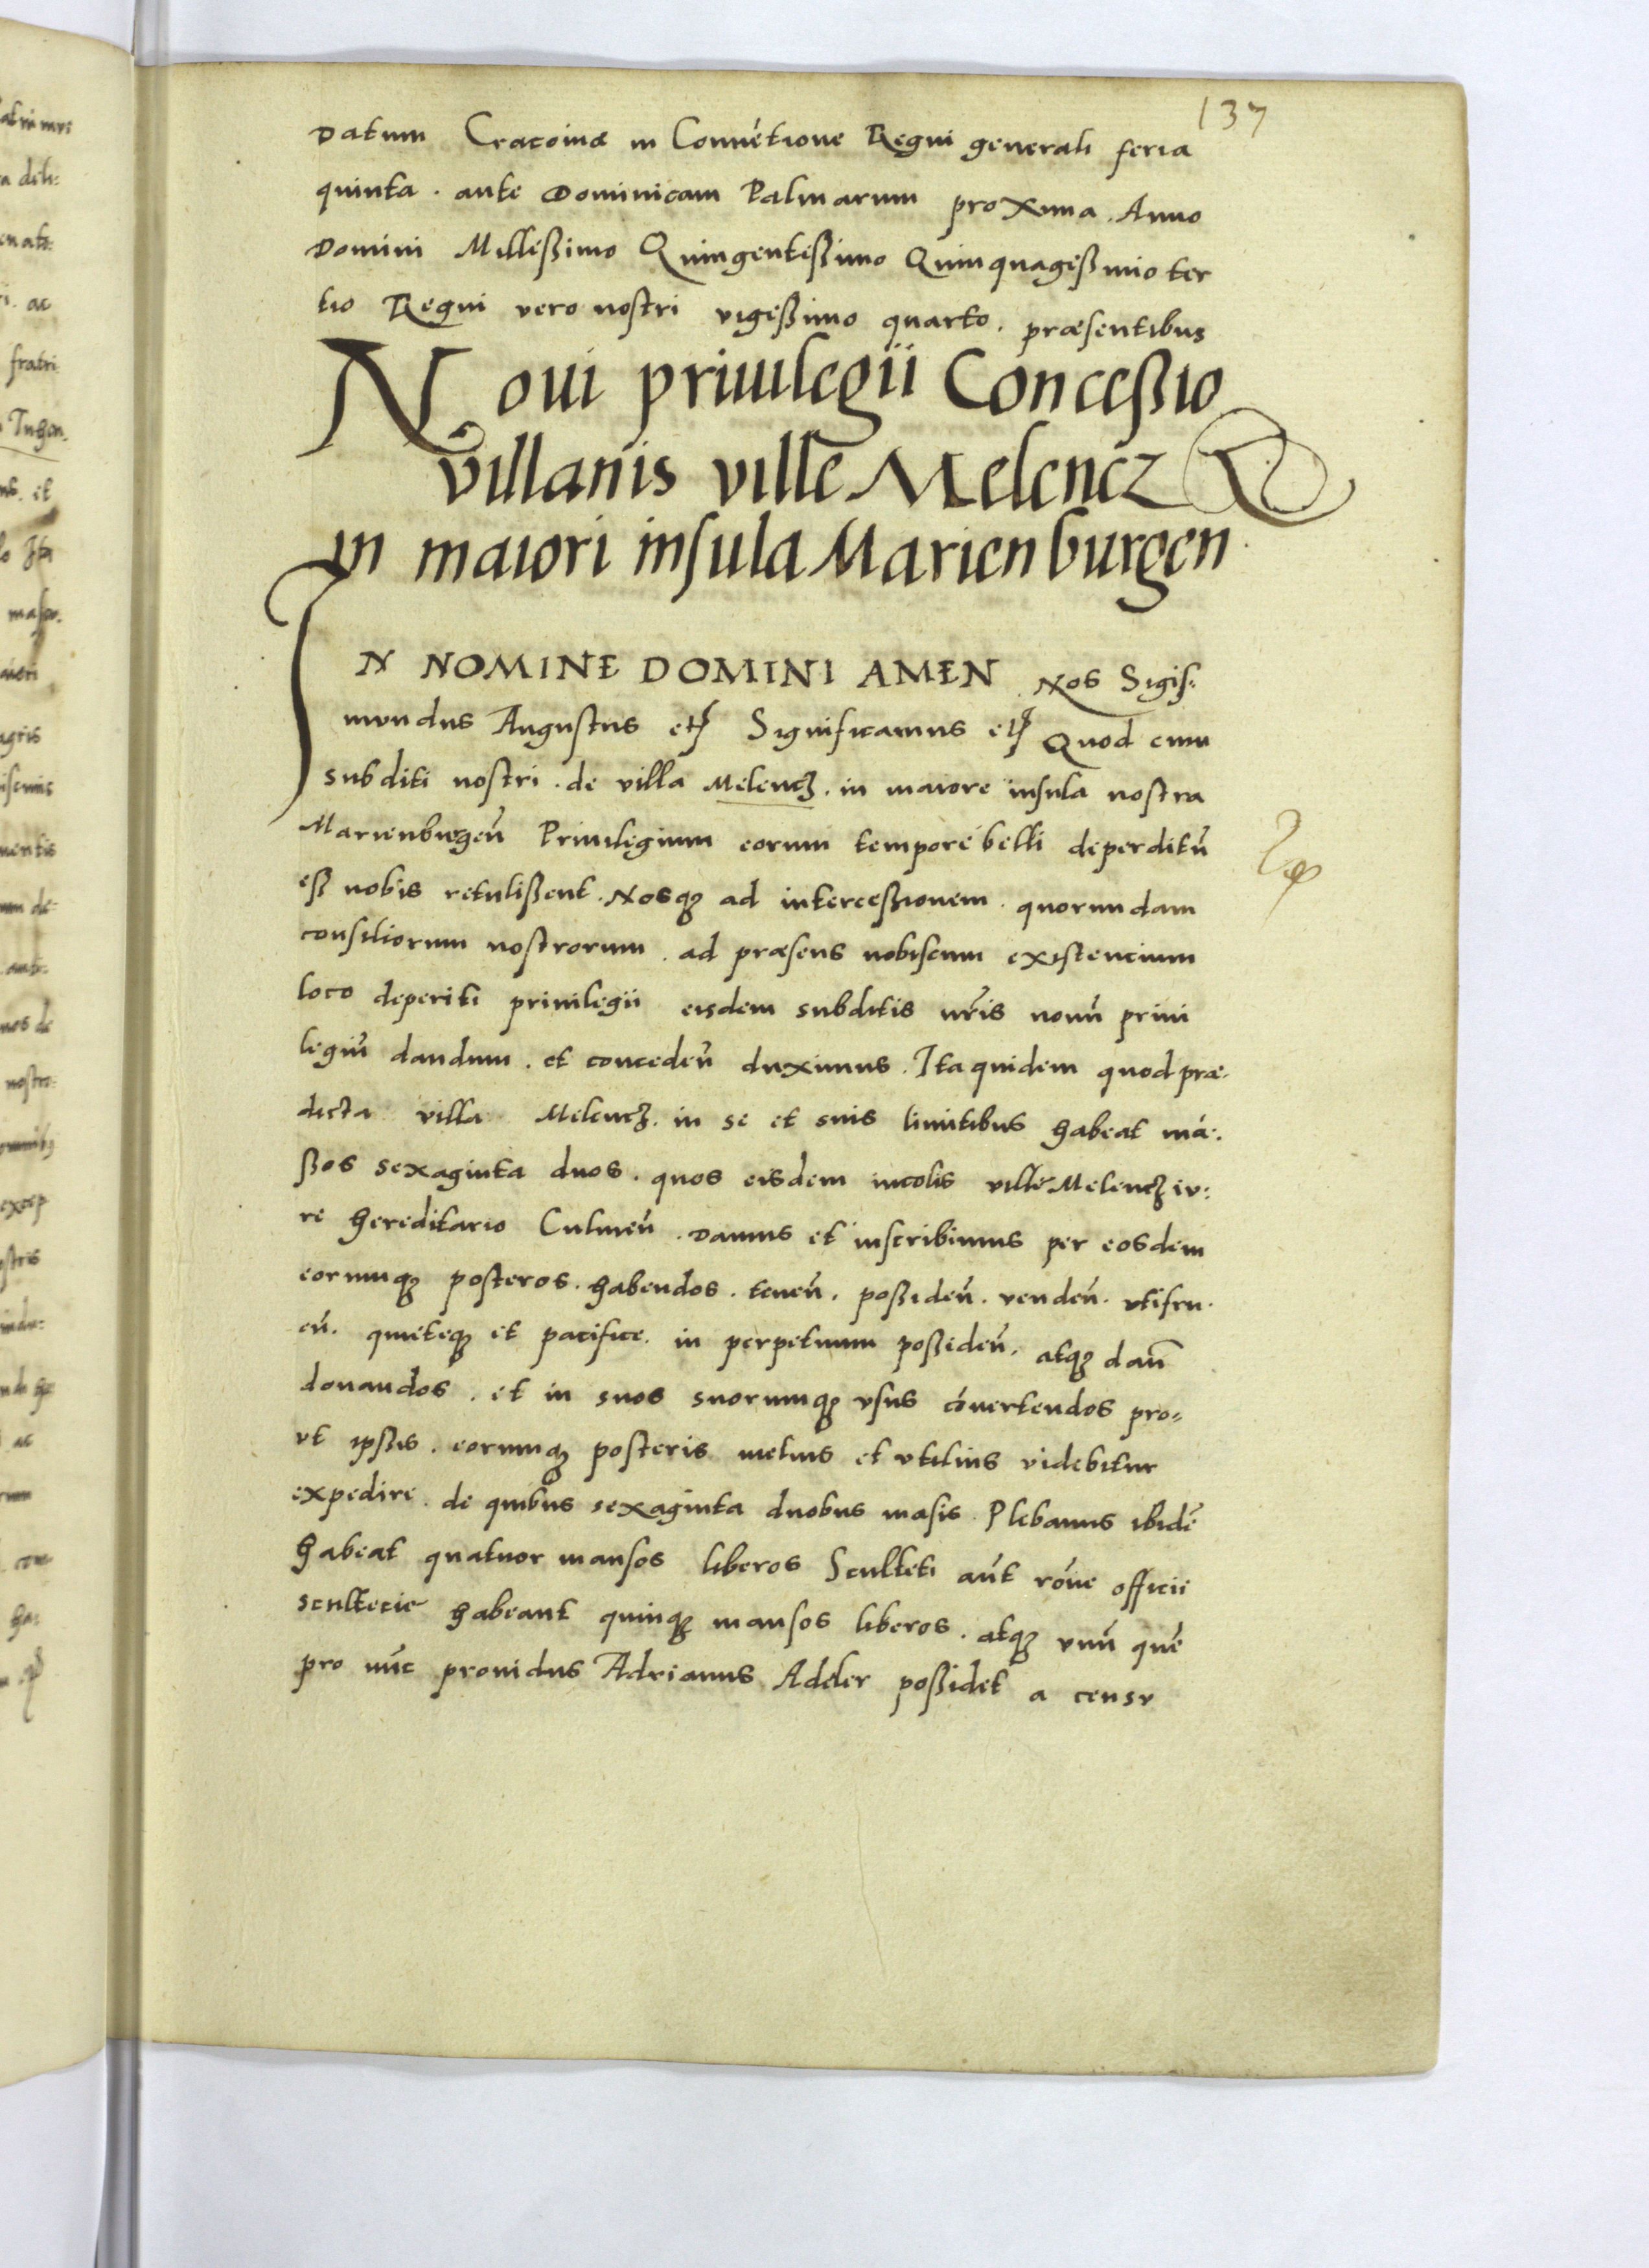 137
Datum Cracoviæ in Convētione Regni generali feria
quinta . ante Dominicam Palmarum proxima . Anno
Domini Milleßimo Quingenteßimo Quinquageßimo ter
tio Regni vero nostri vigeßimo quarto . præsentibus
Noui priuilegii Conceßio
villanis ville Melencz
in maiori insula Marienburgen
IN NOMINE DOMINI AMEN Nos Sigis:
mundus Augustus etc Significamus etc Quod cum
subditi nostri . de villa Melencz . in maiore insula nostra
Marienburgeñ Priuilegium eorum tempore belli deperditū
eß nobis retulißent . Nosq; ad interceßionem . quorundam
consiliorum nostrorum . ad præsens nobiscum existencium
loco deperiti priuilegii eisdem subditis nr̄is nouū priui
legiū dandum . et concedeñ duximus . Ita quidem quod præ-
dicta villa Melencz . in se et suis limitibus habeat mā-
ßos sexaginta duos . quos eisdem incolis ville Melencz iu:
re hereditario Culmeñ . Damus et inscribimus per eosdem
eorumq; posteros . habendos . teneñ . poßideñ . vendeñ . vtifru-
eñ . quieteq; et pacifice . in perpetuum poßedeñ . atq; dañ
donandos . et in suos suorumq; vsus cōuertendos pro-
vt ipsis . eorumq; posteris melius et vtilius videbitur
expedire . de quibus sexaginta duobus masis . Plebanus ibidē
habeat quatuor mansos liberos Sculteti aūt rōne officii
scultecie habeant quinq; mansos liberos . atq; vnū quē
pro nūc prouidus Adrianus Adeler poßidet a censu